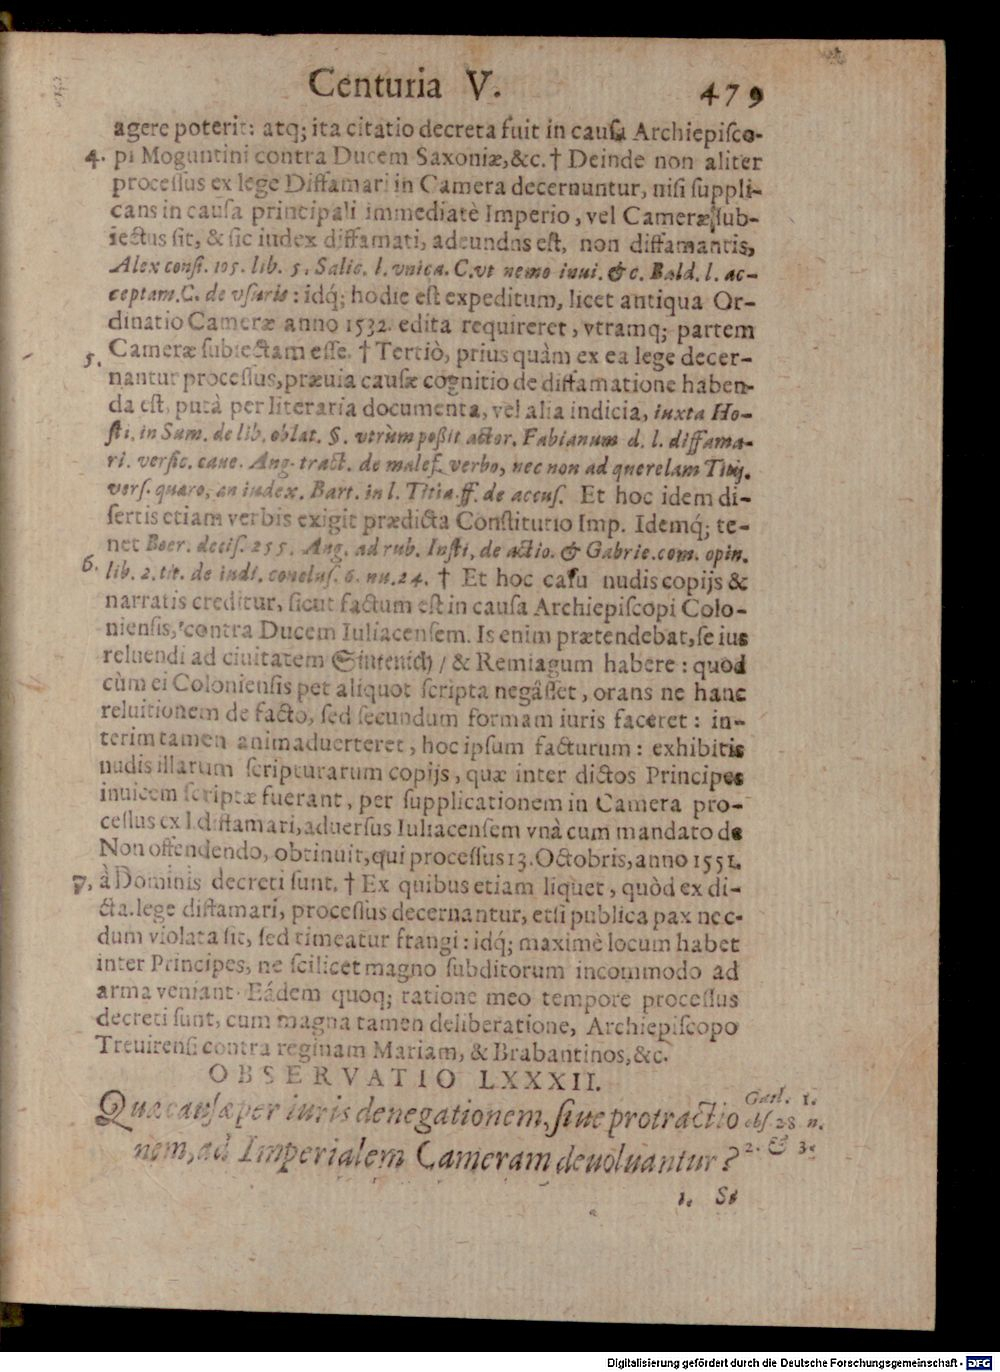 Centuria V. 479
agere poterit: atq; ita citatio decreta fuit in cauſa Archiepiſco-
4. pi Moguntini contra Ducem Saxoniæ, &c. † Deinde non aliter
proceſſus ex lege Diffamari in Camera decernuntur, niſi ſuppli-
cans in cauſa principali immediatè Imperio, vel Cameræ ſub-
iectus ſit, & ſic iudex diffamati, adeundus eſt, non diffamantis,
Alex conſi. 105. lib. 5. Salic. l. vnica. C. vt nemo inui. &c. Bald. l. ac-
ceptam. C. de vſuris: idq́; hodie eſt expeditum, licet antiqua Or-
dinatio Cameræ anno 1532. edita requireret, vtramq; partem
Cameræ ſubiectam eſſe. † Tertiò, prius quàm ex ea lege decer-
5. nantur proceſſus, præuia cauſæ cognitio de diffamatione haben-
da eſt, putà per literaria documenta, vel alia indicia, iuxta Ho-
ſti. in Sum. de lib. oblat. §. vtrùm poßit actor. Fabianum d. l. diffama-
ri. verſic. caue. Ang. tract. de malef. verbo, nec non ad querelam Titij.
verſ. quæro, an iudex. Bart. in l. Titia. ff. de accuſ. Et hoc idem di-
ſertis etiam verbis exigit prædicta Conſtitutio Imp. Idemq́; te-
net Boer. deciſ. 255. Ang. ad rub. Inſti, de actio. & Gabrie. com. opin.
6. lib. 2. tit. de iudi. concluſ. 6. nu. 24. † Et hoc caſu nudis copijs &
narratis creditur, ſicut factum eſt in cauſa Archiepiſcopi Colo-
nienſis, contra Ducem Iuliacenſem. Is enim prætendebat, ſe ius
reluendi ad ciuitatem Sintenich / & Remiagum habere: quod
cùm ei Colonienſis pet aliquot ſcripta negâſſet, orans ne hanc
reluitionem de facto, ſed ſecundum formam iuris faceret: in-
terim tamen animaduerteret, hoc ipſum facturum: exhibitis
nudis illarum ſcripturarum copijs, quæ inter dictos Principes
inuicem ſcriptæ fuerant, per ſupplicationem in Camera pro-
ceſſus ex l. diffamari, aduerſus Iuliacenſem vnà cum mandato de
Non offendendo, obtinuit, qui proceſſus 13. Octobris, anno 1551.
7. à Dominis decreti ſunt. † Ex quibus etiam liquet, quòd ex di-
cta. lege diffamari, proceſſus decernantur, etſi publica pax nec-
dum violata ſit, ſed timeatur frangi: idq́; maximè locum habet
inter Principes, ne ſcilicet magno ſubditorum incommodo ad
arma veniant. Eádem quoq; ratione meo tempore proceſſus
decreti ſunt, cum magna tamen deliberatione, Archiepiſcopo
Treuirenſi contra reginam Mariam, & Brabantinos, &c.
OBSERVATIO LXXXII.
Quæ cauſæ per iuris denegationem, ſiue protractio Gail. 1.
obſ. 28 n.
nem, ad Imperialem Cameram deuoluantur? 2. & 3.
1. Si
Digitalisierung gefördert durch die Deutsche Forschungsgemeinschaft - DFG